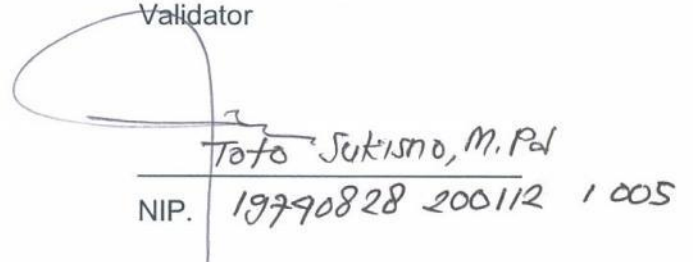 Validator
Toto Sukisno, M.Pd
NIP. 19740828 200112 1 005